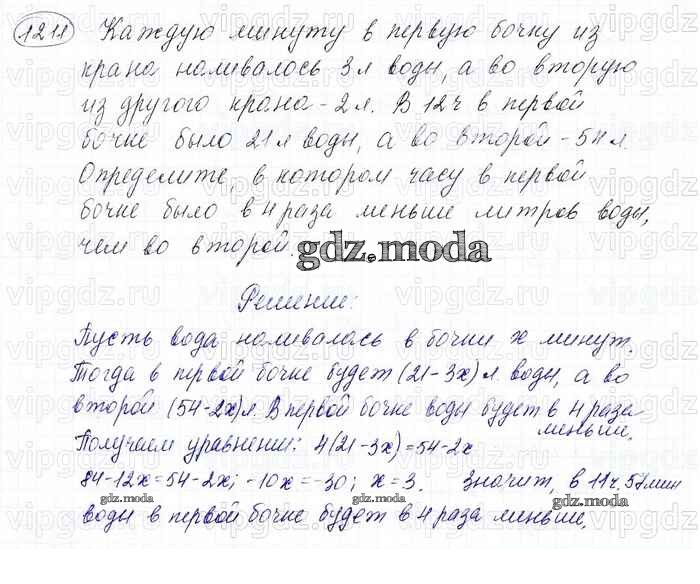 1211 Каждую минуту в первую бочку из
крана наливалось 3 л воды, а во вторую
из другого крана - 2 л. В 12 ч в первой
бочке было 21 л воды, а во второй - 54 л.
Определите, в котором часу в первой
бочке было в 4 раза меньше литров воды,
чем во второй.
gdz.moda
Решение:
Пусть вода наливалась в бочки x минут.
Тогда в первой бочке будет (21-3x) л. воды, а во
второй (54-2x) л. В первой бочке воды будет в 4 раза
меньше.
Получаем уравнении: 4(21-3x)=54-2x
84-12x=54-2x; -10x=-30; x=3. Значит, в 11 ч. 57 мин
gdz.moda gdz.moda gdz.moda
воды в первой бочке будет в 4 раза меньше.